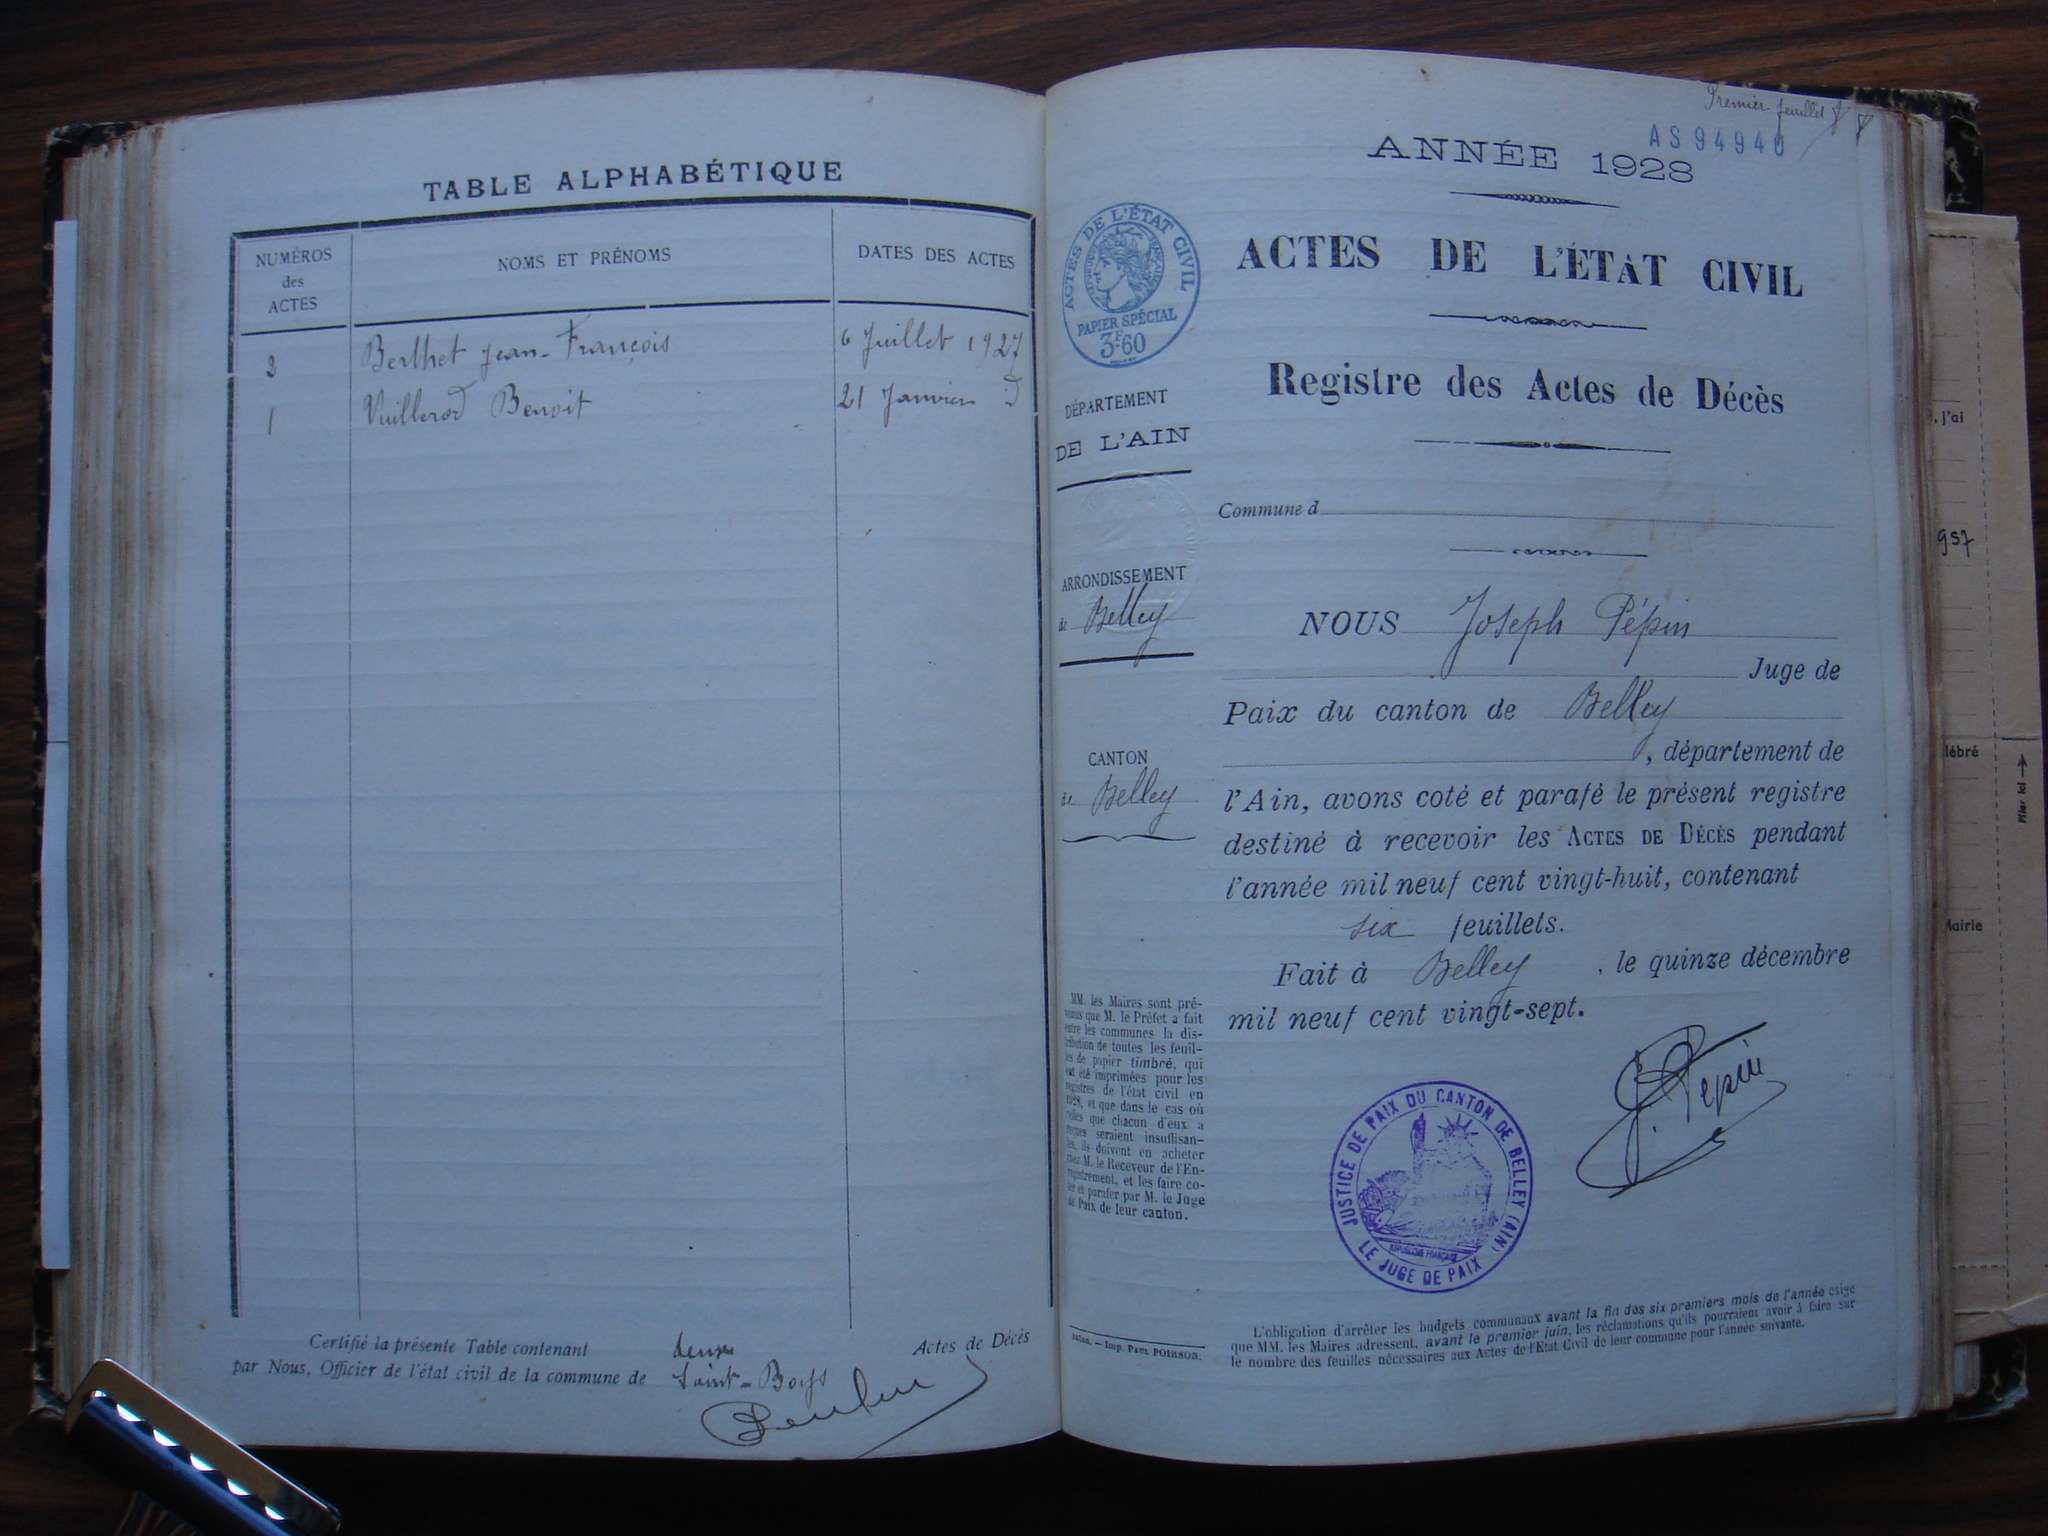 TABLE ALPHABÉTIQUE
NUMÉROS
des
ACTES
NOMS ET PRÉNOMS
DATES DES ACTES
2 Berthet Jean-François 6 Juillet 1927
1 Vuillerod Benoit 21 Janvier d
Certifié la présente Table contenant deux Actes de Décès
par Nous, Officier de l'état civil de la commune de Saint-Boys
Premier feuillet
AS 94940
ANNÉE 1928
ACTES DE L'ÉTAT CIVIL
PAPIER SPÉCIAL
3F60
ACTES DE L'ÉTAT CIVIL
Registre des Actes de Décès
DÉPARTEMENT
DE L'AIN
Commune d
ARRONDISSEMENT
de Belley
CANTON
de Belley
NOUS Joseph Pépin
Juge de
Paix du canton de Belley
, département de
l'Ain, avons coté et parafé le présent registre
destiné à recevoir les ACTES DE DÉCÈS pendant
l'année mil neuf cent vingt-huit, contenant
six feuillets.
Fait à Belley, le quinze décembre
mil neuf cent vingt-sept.
J. Pépin
JUSTICE DE PAIX DU CANTON DE BELLEY (AIN)
RÉPUBLIQUE FRANÇAISE
LE JUGE DE PAIX
MM. les Maires sont pré-
venus que M. le Préfet a fait
entre les communes la dis-
tribution de toutes les feuil-
les de papier timbré, qui
ont été imprimées pour les
registres de l'état civil en
1928, et que dans le cas où
celles que chacun d'eux a
reçues seraient insuffisan-
tes, ils doivent en acheter
chez M. le Receveur de l'En-
registrement, et les faire co-
ter et parafer par M. le Juge
de Paix de leur canton.
Imp. PAUL POIRSON.
L'obligation d'arrêter les budgets communaux avant la fin des six premiers mois de l'année exige
que MM. les Maires adressent, avant le premier juin, les réclamations qu'ils pourraient avoir à faire sur
le nombre des feuilles nécessaires aux Actes de l'État Civil de leur commune pour l'année suivante.
, j'ai
957
lébré
Plier ici
Mairie